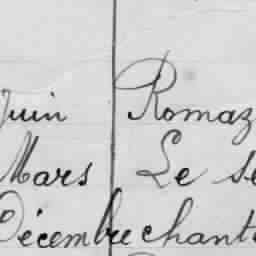 Juin Romaz
Mars Le se
Décembre chante